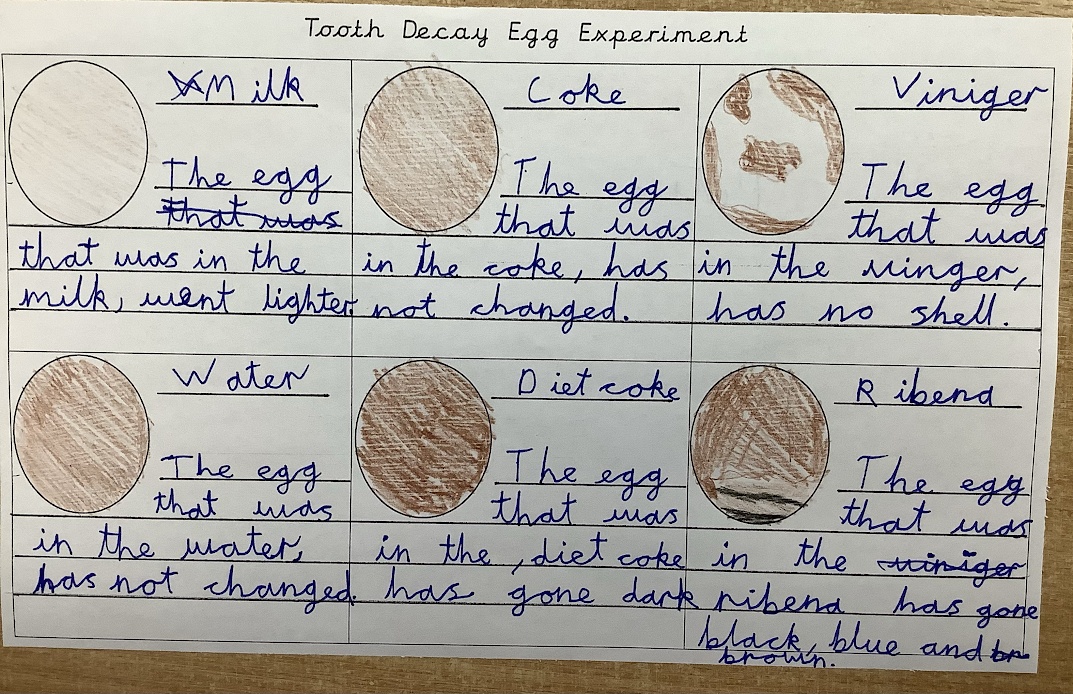 Tooth Decay Egg Experiment
Milk
The egg
that was
that was in the
milk, went lighter.
Coke
The egg
that was
in the coke, has
not changed.
Viniger
The egg
that was
in the vinger,
has no shell.
Water
The egg
that was
in the water,
has not changed.
Diet coke
The egg
that was
in the, diet coke
has gone dark
Ribend
The egg
that was
in the viniger
ribend has gone
black, blue and br
brown.